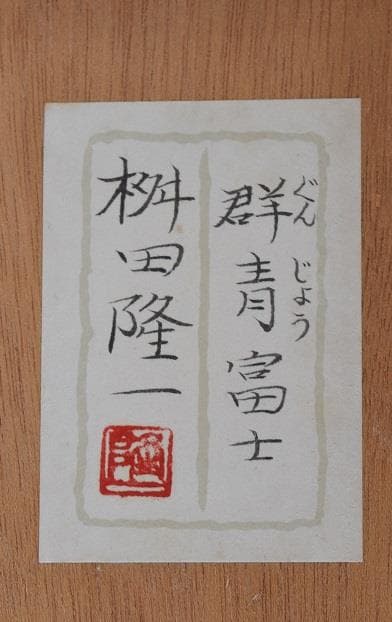 群青富士
ぐんじょう
桝田隆一